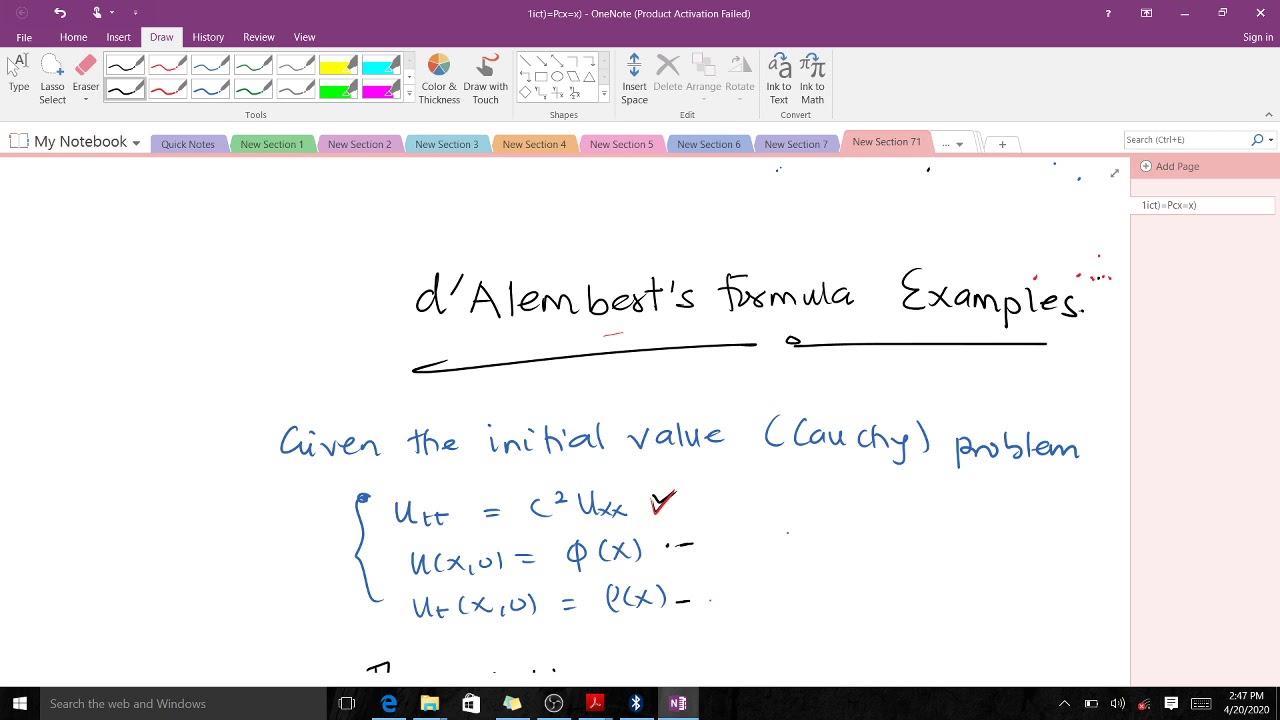 1ict)=Pcx=x) - OneNote (Product Activation Failed)
File Home Insert Draw History Review View Sign in
Type Lasso Select Eraser Color & Thickness Draw with Touch Insert Space Delete Arrange Rotate Ink to Text Ink to Math
Tools Shapes Edit Convert
My Notebook Quick Notes New Section 1 New Section 2 New Section 3 New Section 4 New Section 5 New Section 6 New Section 7 New Section 71 ... Search (Ctrl+E)
Add Page
1ict)=Pcx=x)
d'Alembert's formula Examples.
Given the initial value (Cauchy) problem
Utt = C² Uxx ✓
U(x,0) = φ(x)
Ut(x,0) = ρ(x)
Search the web and Windows
2:47 PM
4/20/2020